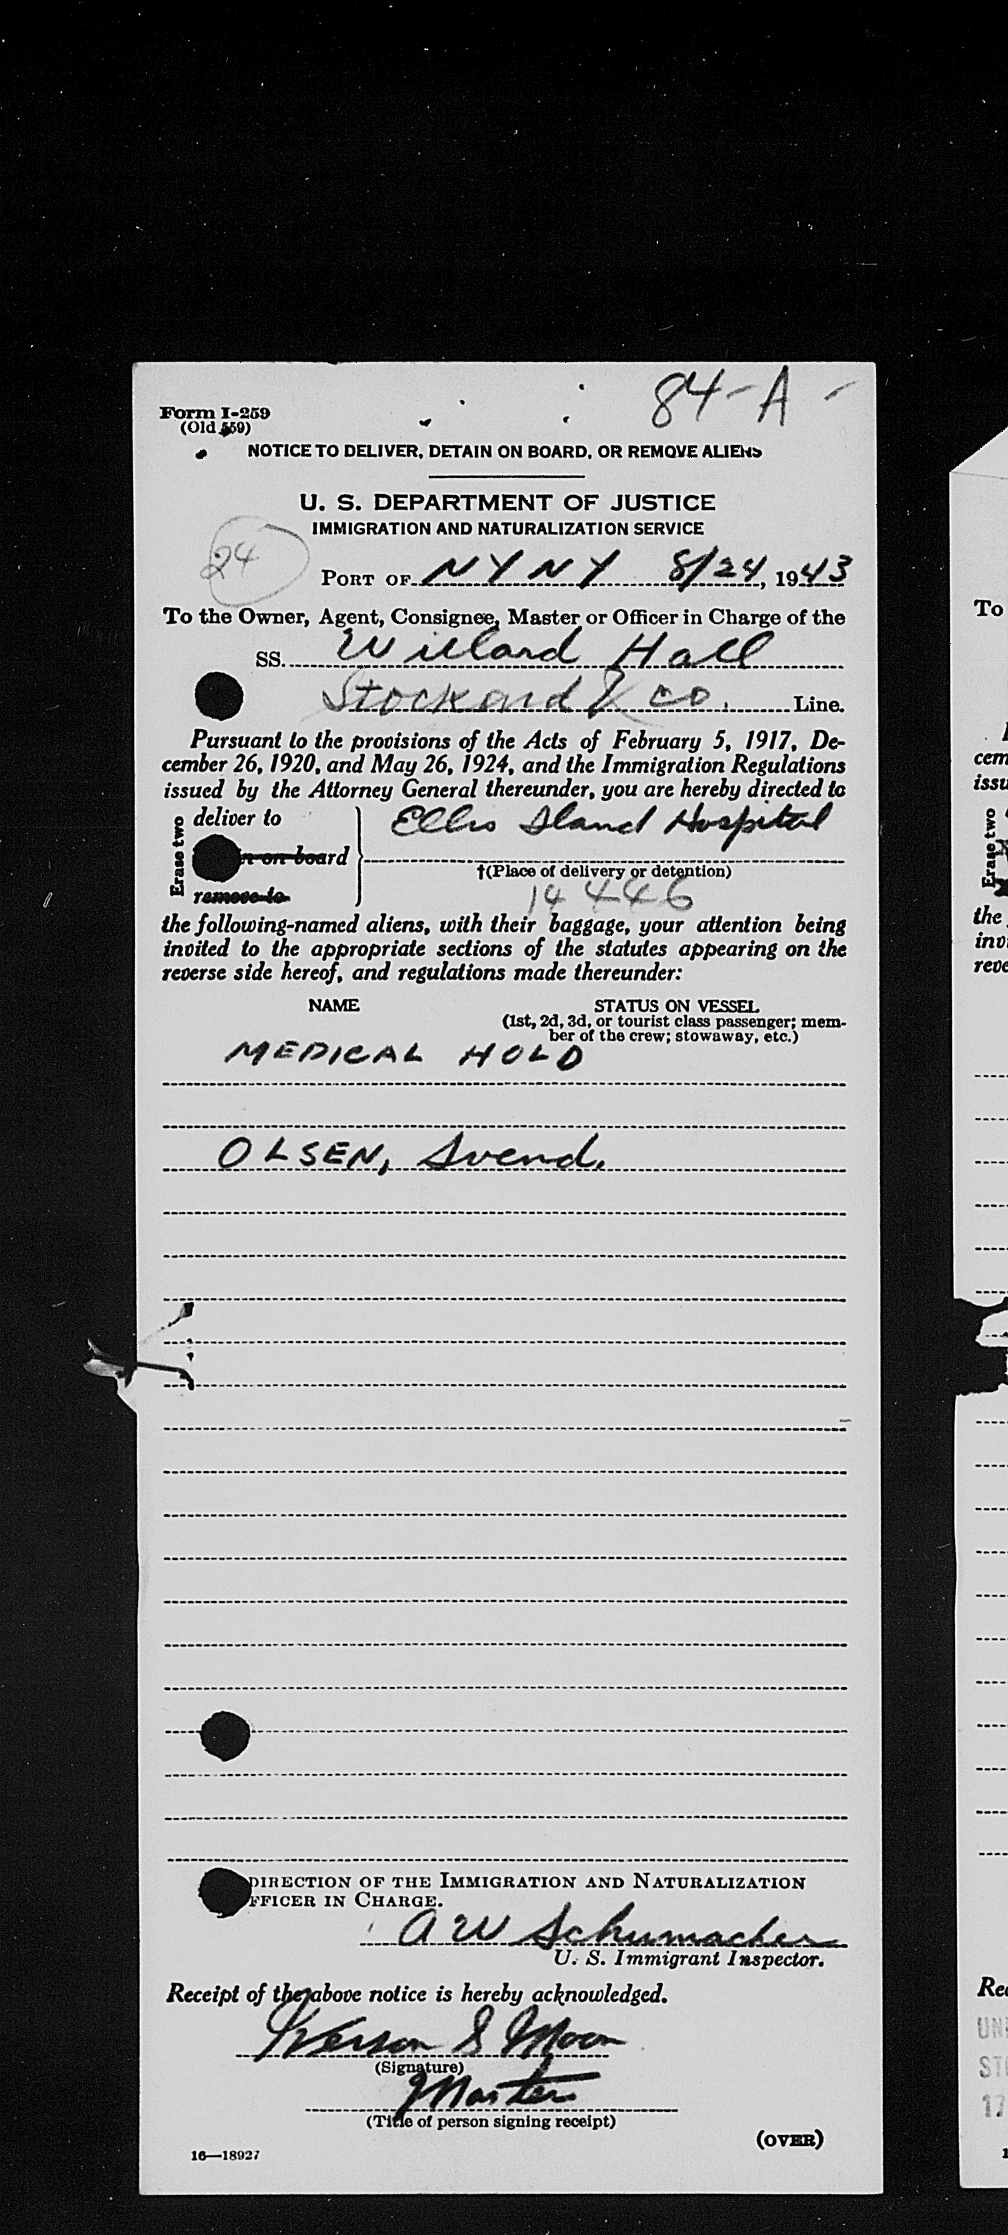 84-A-
Form I-259
(Old 559)
NOTICE TO DELIVER, DETAIN ON BOARD, OR REMOVE ALIENS
U. S. DEPARTMENT OF JUSTICE
IMMIGRATION AND NATURALIZATION SERVICE
24
PORT OF NY NY 8/24, 1943
To the Owner, Agent, Consignee, Master or Officer in Charge of the
SS. Willard Hall
Stockard & Co. Line.
Pursuant to the provisions of the Acts of February 5, 1917, De-
cember 26, 1920, and May 26, 1924, and the Immigration Regulations
issued by the Attorney General thereunder, you are hereby directed to
Erase two
deliver to
Ellis Island Hospital
n on board
†(Place of delivery or detention)
remove to
14446
the following-named aliens, with their baggage, your attention being
invited to the appropriate sections of the statutes appearing on the
reverse side hereof, and regulations made thereunder:
NAME STATUS ON VESSEL
(1st, 2d, 3d, or tourist class passenger; mem-
ber of the crew; stowaway, etc.)
MEDICAL HOLD
OLSEN, Svend.
DIRECTION OF THE IMMIGRATION AND NATURALIZATION
FFICER IN CHARGE.
A W Schumacher
U. S. Immigrant Inspector.
Receipt of the above notice is hereby acknowledged.
S Moon
(Signature)
Master
(Title of person signing receipt)
(OVER)
16—18927
To
cem
issu
Erase two
the
inv
reve
Rec
UN
ST
17